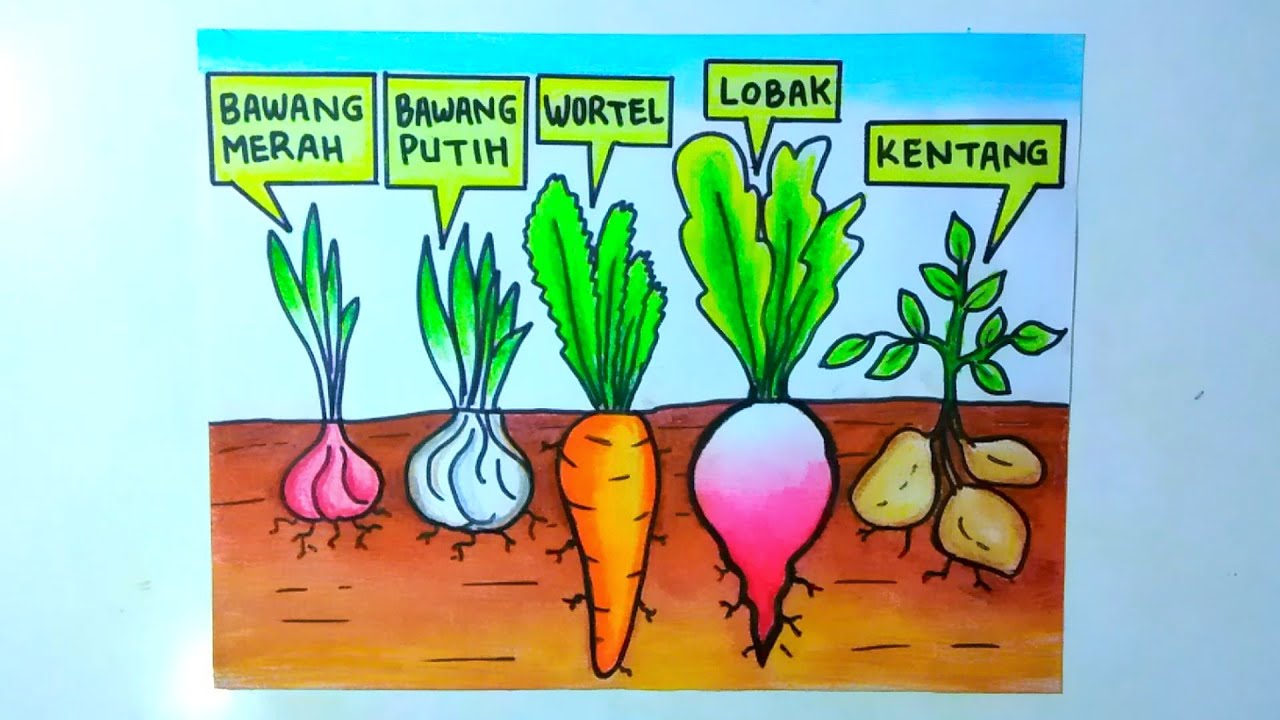 BAWANG
MERAH
BAWANG
PUTIH
WORTEL
LOBAK
KENTANG